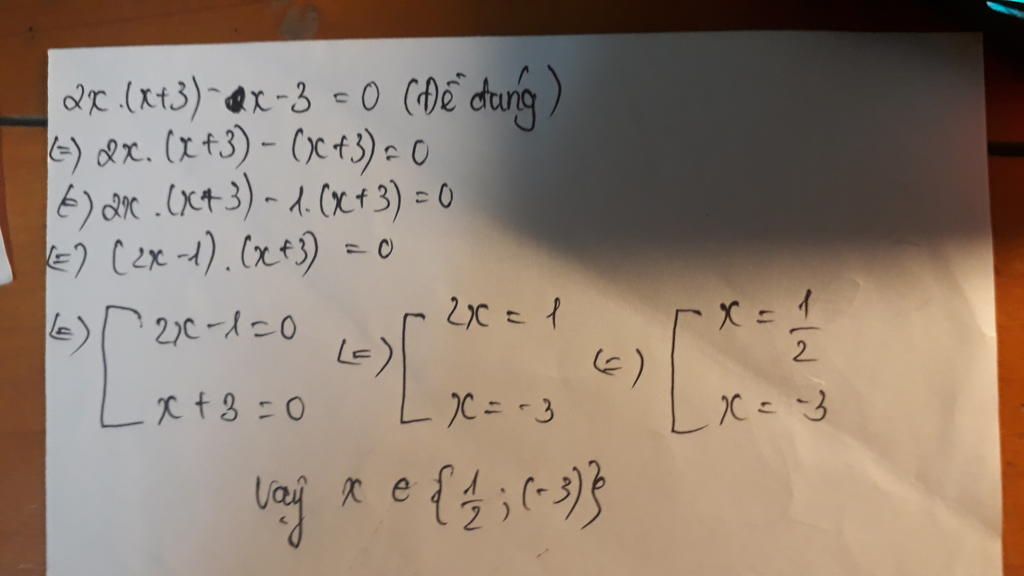 2x.(x+3)-x-3 = 0 (Đề đúng)
(=) 2x.(x+3)-(x+3)=0
(=) 2x.(x+3)-1.(x+3)=0
(=) (2x-1).(x+3) = 0
(=) [ 2x-1=0 (=) [ 2x = 1 (=) [ x = 1/2
x+3=0 x = -3 x = -3
Vậy x ∈ {1/2; (-3)}